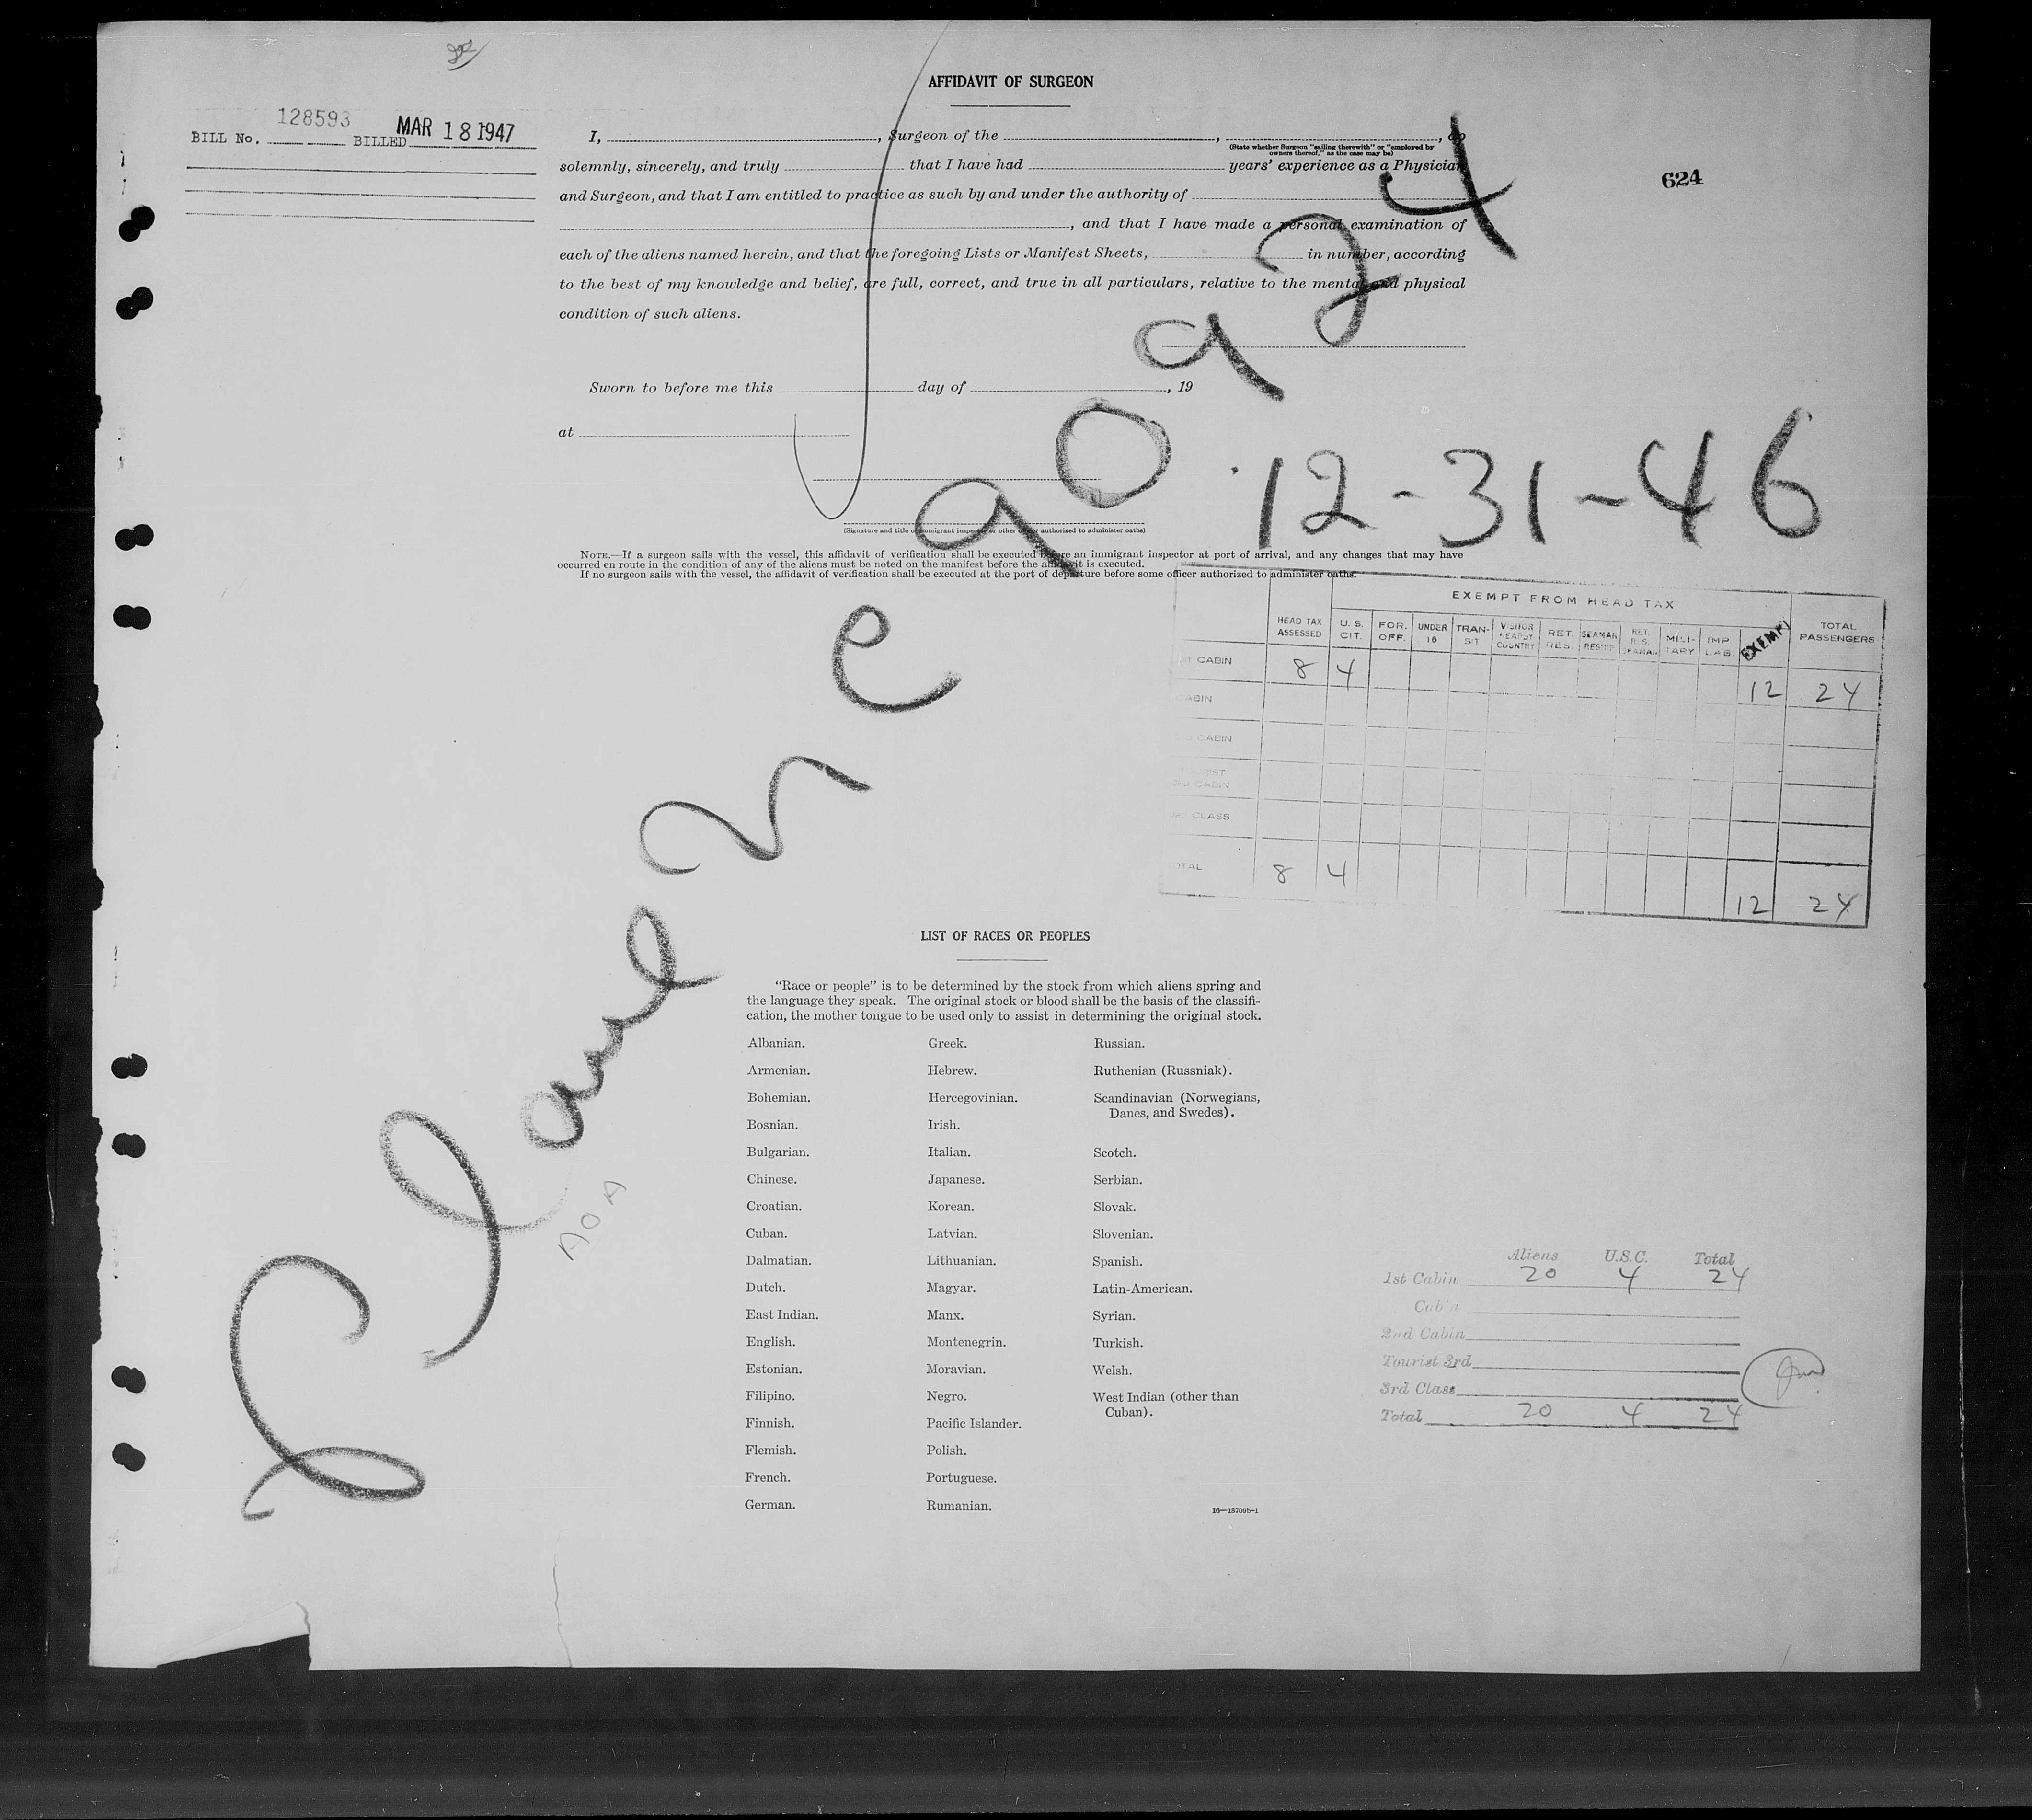 AFFIDAVIT OF SURGEON
BILL No. 128593 BILLED MAR 18 1947
624
I, , Surgeon of the , , do
(State whether Surgeon "sailing therewith" or "employed by owners thereof," as the case may be)
solemnly, sincerely, and truly that I have had years' experience as a Physician
and Surgeon, and that I am entitled to practice as such by and under the authority of
, and that I have made a personal examination of
each of the aliens named herein, and that the foregoing Lists or Manifest Sheets, in number, according
to the best of my knowledge and belief, are full, correct, and true in all particulars, relative to the mental and physical
condition of such aliens.
Sworn to before me this day of , 19
at
(Signature and title of immigrant inspector or other officer authorized to administer oaths)
NOTE.—If a surgeon sails with the vessel, this affidavit of verification shall be executed before an immigrant inspector at port of arrival, and any changes that may have
occurred en route in the condition of any of the aliens must be noted on the manifest before the affidavit is executed.
If no surgeon sails with the vessel, the affidavit of verification shall be executed at the port of departure before some officer authorized to administer oaths.
90924
12-31-46
EXEMPT FROM HEAD TAX
HEAD TAX ASSESSED U. S. CIT. FOR. OFF. UNDER 16 TRAN-SIT VISITOR NEARBY COUNTRY RET. RES. SEAMAN RET. R.S. SEAMAN MILI-TARY IMP. LAB. EXEMPT TOTAL PASSENGERS
CABIN 8 4 12 24
CABIN
CABIN
CABIN
CLASS
TOTAL 8 4 12 24
LIST OF RACES OR PEOPLES
"Race or people" is to be determined by the stock from which aliens spring and
the language they speak. The original stock or blood shall be the basis of the classifi-
cation, the mother tongue to be used only to assist in determining the original stock.
Albanian.
Armenian.
Bohemian.
Bosnian.
Bulgarian.
Chinese.
Croatian.
Cuban.
Dalmatian.
Dutch.
East Indian.
English.
Estonian.
Filipino.
Finnish.
Flemish.
French.
German.
Greek.
Hebrew.
Hercegovinian.
Irish.
Italian.
Japanese.
Korean.
Latvian.
Lithuanian.
Magyar.
Manx.
Montenegrin.
Moravian.
Negro.
Pacific Islander.
Polish.
Portuguese.
Rumanian.
Russian.
Ruthenian (Russniak).
Scandinavian (Norwegians,
Danes, and Swedes).
Scotch.
Serbian.
Slovak.
Slovenian.
Spanish.
Latin-American.
Syrian.
Turkish.
Welsh.
West Indian (other than
Cuban).
16—18709b-1
AOA
Aliens U.S.C. Total
1st Cabin 20 4 24
Cabin
2nd Cabin
Tourist 3rd
3rd Class
Total 20 4 24